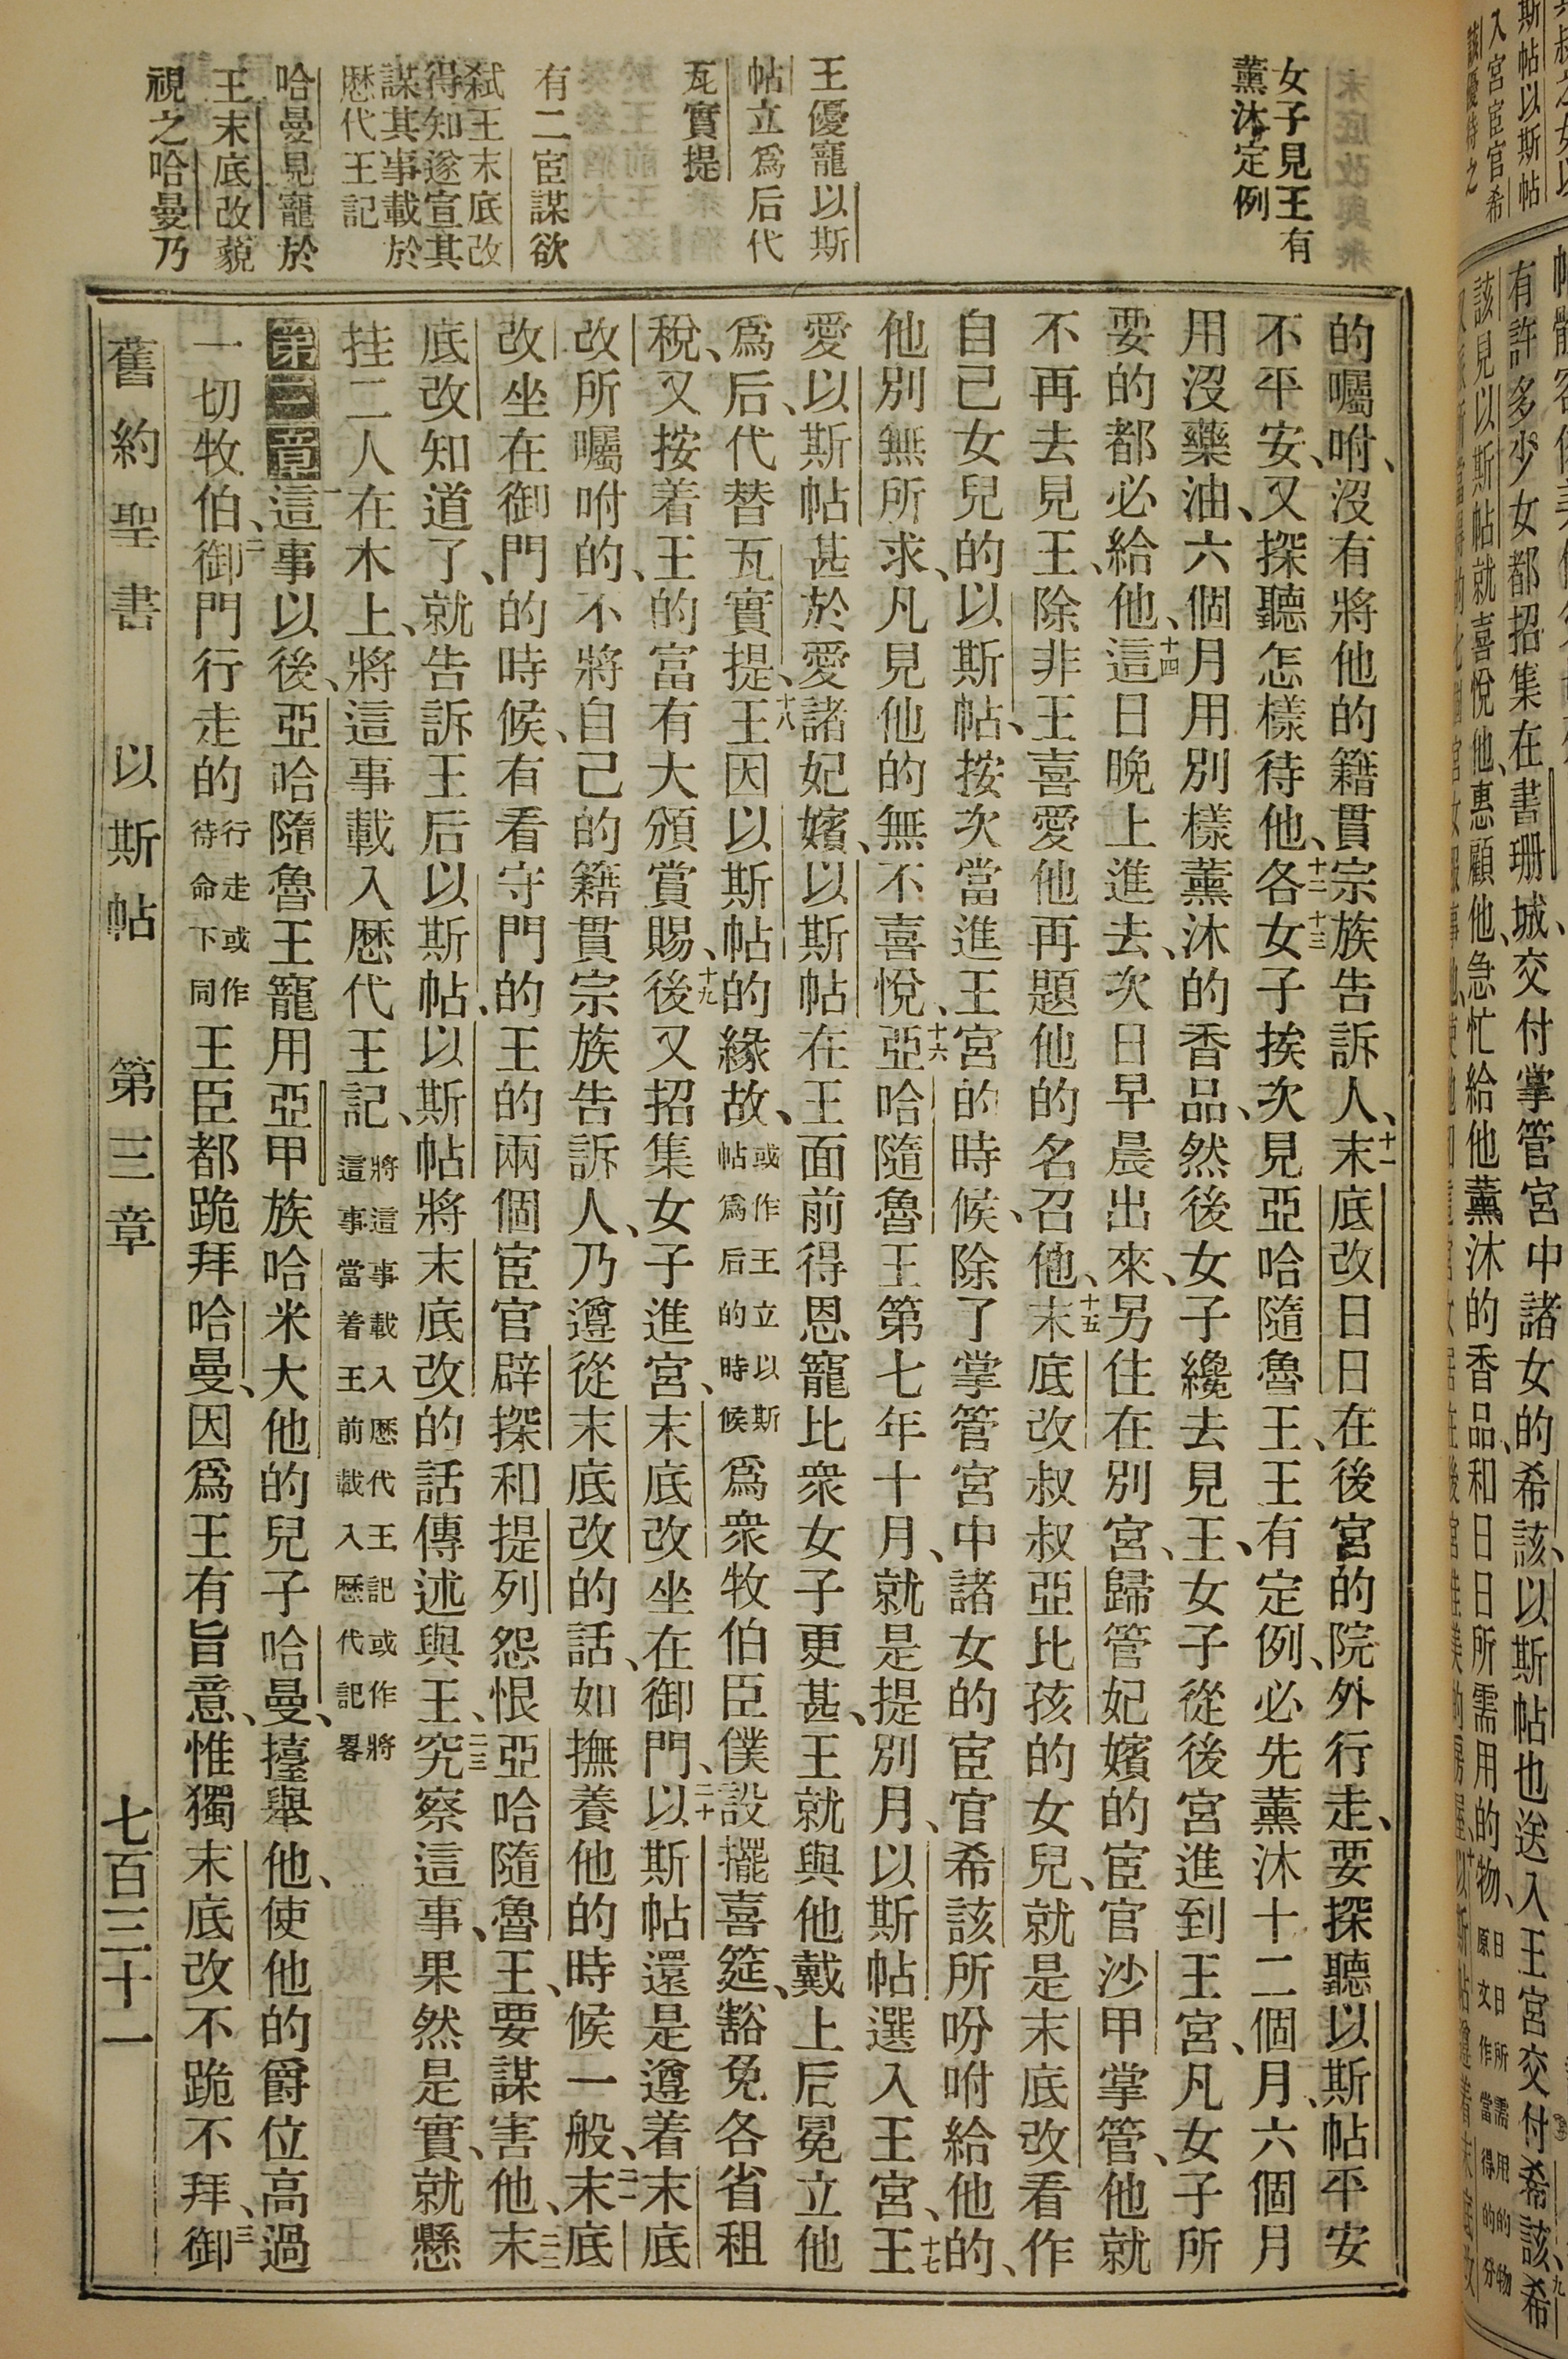 女子見王有
薰沐定例
王優寵以斯
帖立爲后代
瓦實提
有二宦謀欲
弑王末底改
得知遂宣其
謀其事載於
歷代王記
哈曼見寵於
王末底改藐
視之哈曼乃
的囑咐、沒有將他的籍貫宗族告訴人、十一末底改日日在後宮的院外行走、要探聽以斯帖平安
不平安、又探聽怎樣待他、十二各十三女子挨次見亞哈隨魯王、王有定例、必先薰沐十二個月、六個月
用沒藥油、六個月用別樣薰沐的香品、然後女子纔去見王、女子從後宮進到王宮、凡女子所
要的都必給他、十四這日晚上進去、次日早晨出來、另住在別宮、歸管妃嬪的宦官沙甲掌管、他就
不再去見王、除非王喜愛他再題他的名召他、十五末底改叔叔亞比孩的女兒、就是末底改看作
自己女兒的以斯帖、按次當進王宮的時候、除了掌管宮中諸女的宦官希該所吩咐給他的、
他別無所求、凡見他的無不喜悅、十六亞哈隨魯王第七年十月、就是提別月、以斯帖選入王宮、十七王
愛以斯帖甚於愛諸妃嬪、以斯帖在王面前得恩寵比衆女子更甚、王就與他戴上后冕立他
爲后、代替瓦實提、十八王因以斯帖的緣故、或作王立以斯帖爲后的時候爲衆牧伯臣僕設擺喜筵、豁免各省租
稅、又按着王的富有大頒賞賜、十九後又招集女子進宮、末底改坐在御門、二十以斯帖還是遵着末底
改所囑咐的、不將自己的籍貫宗族告訴人、乃遵從末底改的話、如撫養他的時候一般、二一末底
改坐在御門的時候、有看守門的王的兩個宦官辟探和提列怨恨亞哈隨魯王、要謀害他、二二末
底改知道了、就告訴王后以斯帖、以斯帖將末底改的話傳述與王、二三究察這事、果然是實、就懸
挂二人在木上、將這事載入歷代王記、將這事載入歷代王記或作將這事當着王前載入歷代記畧
第三章一這事以後、亞哈隨魯王寵用亞甲族哈米大他的兒子哈曼、擡舉他、使他的爵位高過
一切牧伯、二御門行走的行走或作待命下同王臣都跪拜哈曼、因爲王有旨意、惟獨末底改不跪不拜、三御
舊約聖書　以斯帖　第三章　七百三十一